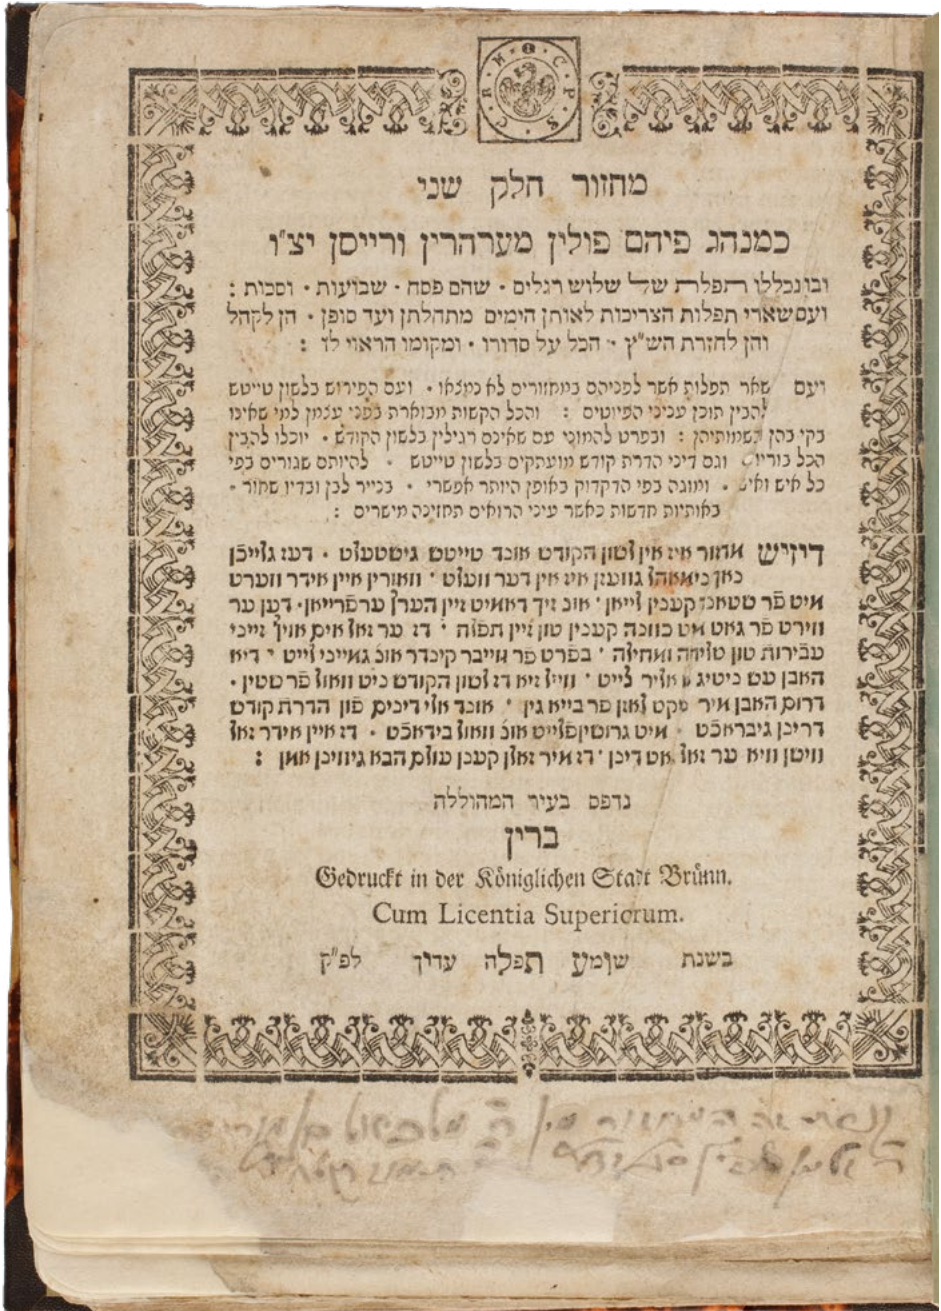 מחזור חלק שני
כמנהג פיהם פולין מערהרין ורייסן יצ"ו
ובו נכללו התפלת של שלוש רגלים · שהם פסח · שבועות · וסכות :
ועם שארי תפלות הצריכות לאותן הימים מתחלתן ועד סופן · הן לקהל
והן לחזרת הש"ץ · הכל על סדורו · ומקומו הראוי לו :
ועם שאר תפלות אשר לפניהם במחזורים לא נמצאו · ועם הפירוש בלשון טייטש
להבין תוכן עניני הפיוטים : והכל הקשות מבוארת בפני עצמן למי שאינו
בקי בהן בשמותיהן : ובפרט להמוני עם שאינם רגילין בלשון הקודש · יוכלו להבין
הכל בוריו · וגם דיני הדרת קודש מועתקים בלשון טייטש · להיותם שגורים בפי
כל איש ואיש · ומוגה בפי הדקדוק באופן היותר אפשרי · בנייר לבן ובדיו שחור ·
באותיות חדשות כאשר עיני הרואים תחזינה מישרים :
דיזיש מחזור איז אין לשון הקודש אונד טייטש גישטעלט · דעז גלייכן
נאך ניאמאהל גוועזן איז אין דער וועלט · וואורין איין אידר ווערט
מיט פר שטאנד קענין לייאן · אונ זיך דאמיט זיין הערץ ערפרייאן · דען ער
ווירט פר גאט מיט כוונה קענין טון זיין תפלה · דז ער זאל אים אויף זייני
עבירות טון סליחה ומחילה · בפרט פר ווייבר קינדר אונ גמייני לייט · דיא
האבן עס ניטיג אליר לייט · ווייל זיא דז לשון הקודש ניט וואול פר שטין ·
דרום האבן מיר לאזן פר בייא גין · אונד אלי דינים פון הדרת קודש
דרינן גיבראכט · מיט גרוסין פלייס אונ וואול בידאכט · דז איין אידר זאל
וויסן וויא ער זאל גאט דינן · דז מיר זאלן קענן עולם הבא גיווינן אמן :
נדפס בעיר המהוללה
ברין
Gedruckt in der Königlichen Stadt Brünn.
Cum Licentia Superiorum.
בשנת שומע תפלה עדיך לפ"ק